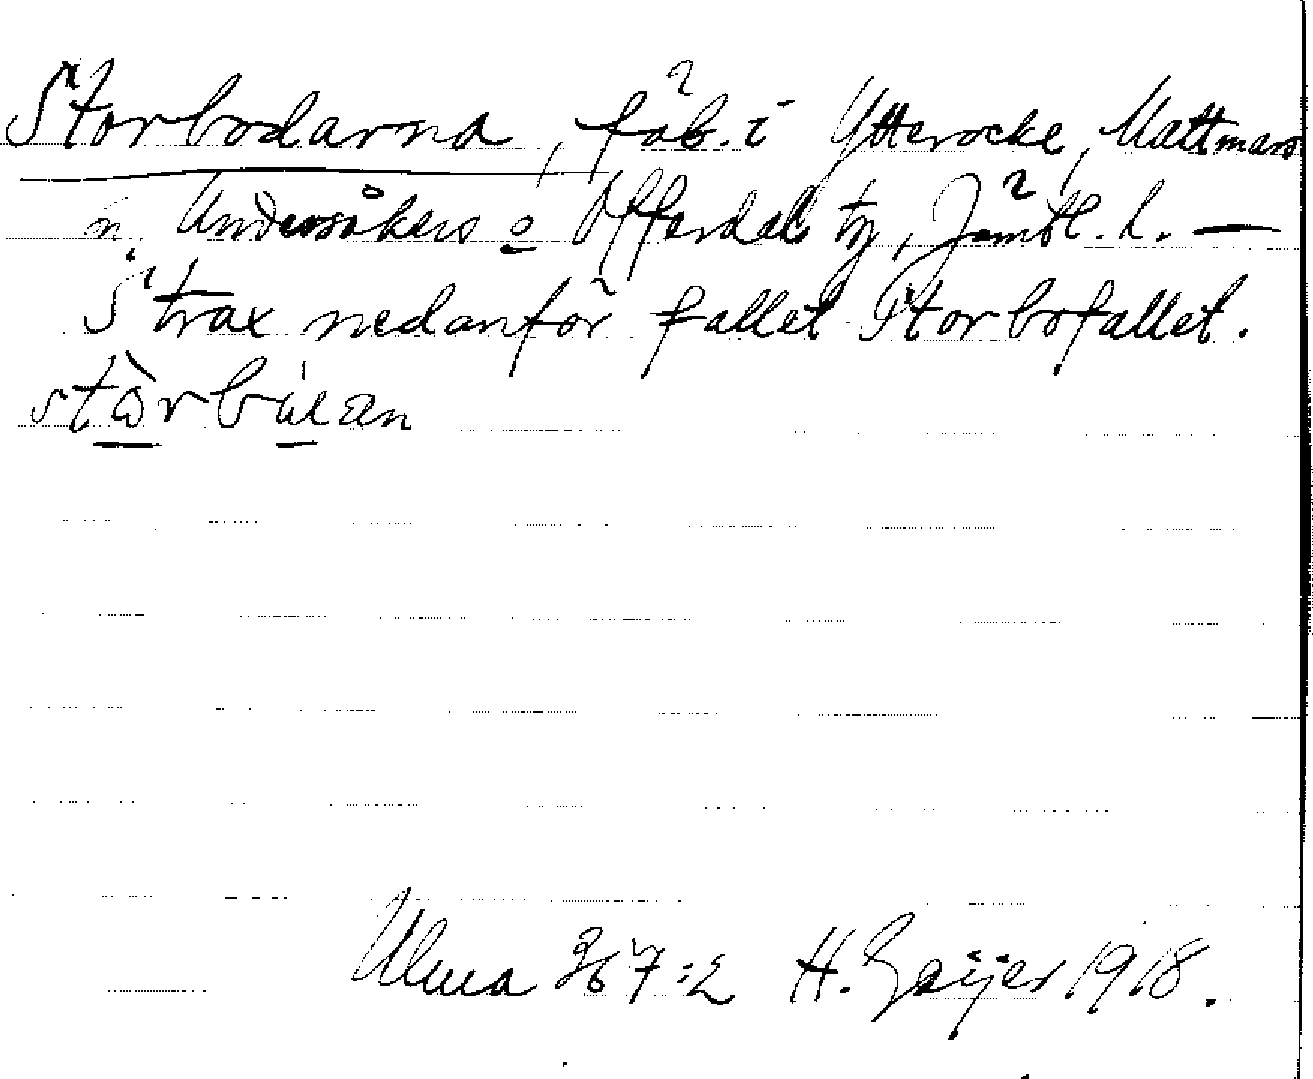 Storbodarna, fäb. i Ytterocke, Mattmars
n, Undersåkers o Offerdals tg, Jämtl. l. —
Strax nedanför fallet Storbofallet.
Ulma 367:2 H. Geijer 1918.